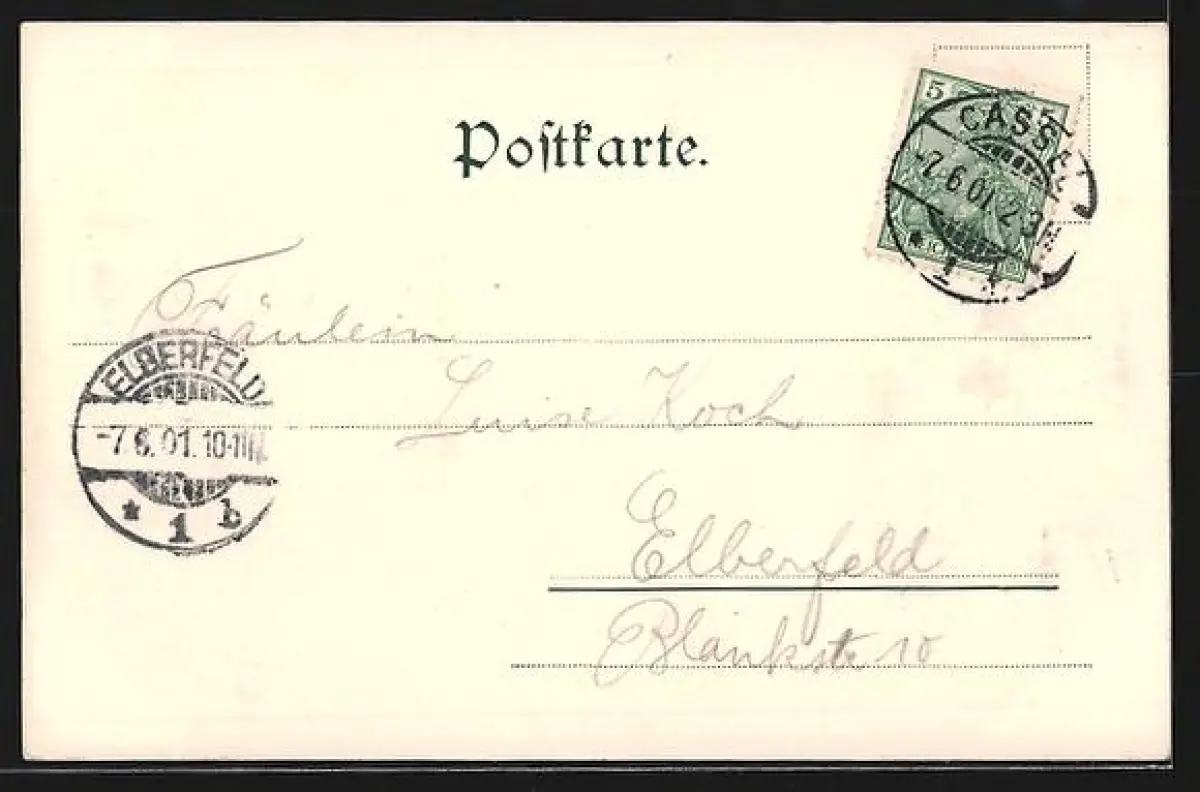 Postkarte.
5 5
CASSEL
-7.6.01. 2-3N
* 1
Fräulein
ELBERFELD
-7.6.01. 10-11N
* 1 b
Luise Koch
Elberfeld
Blankstr 10